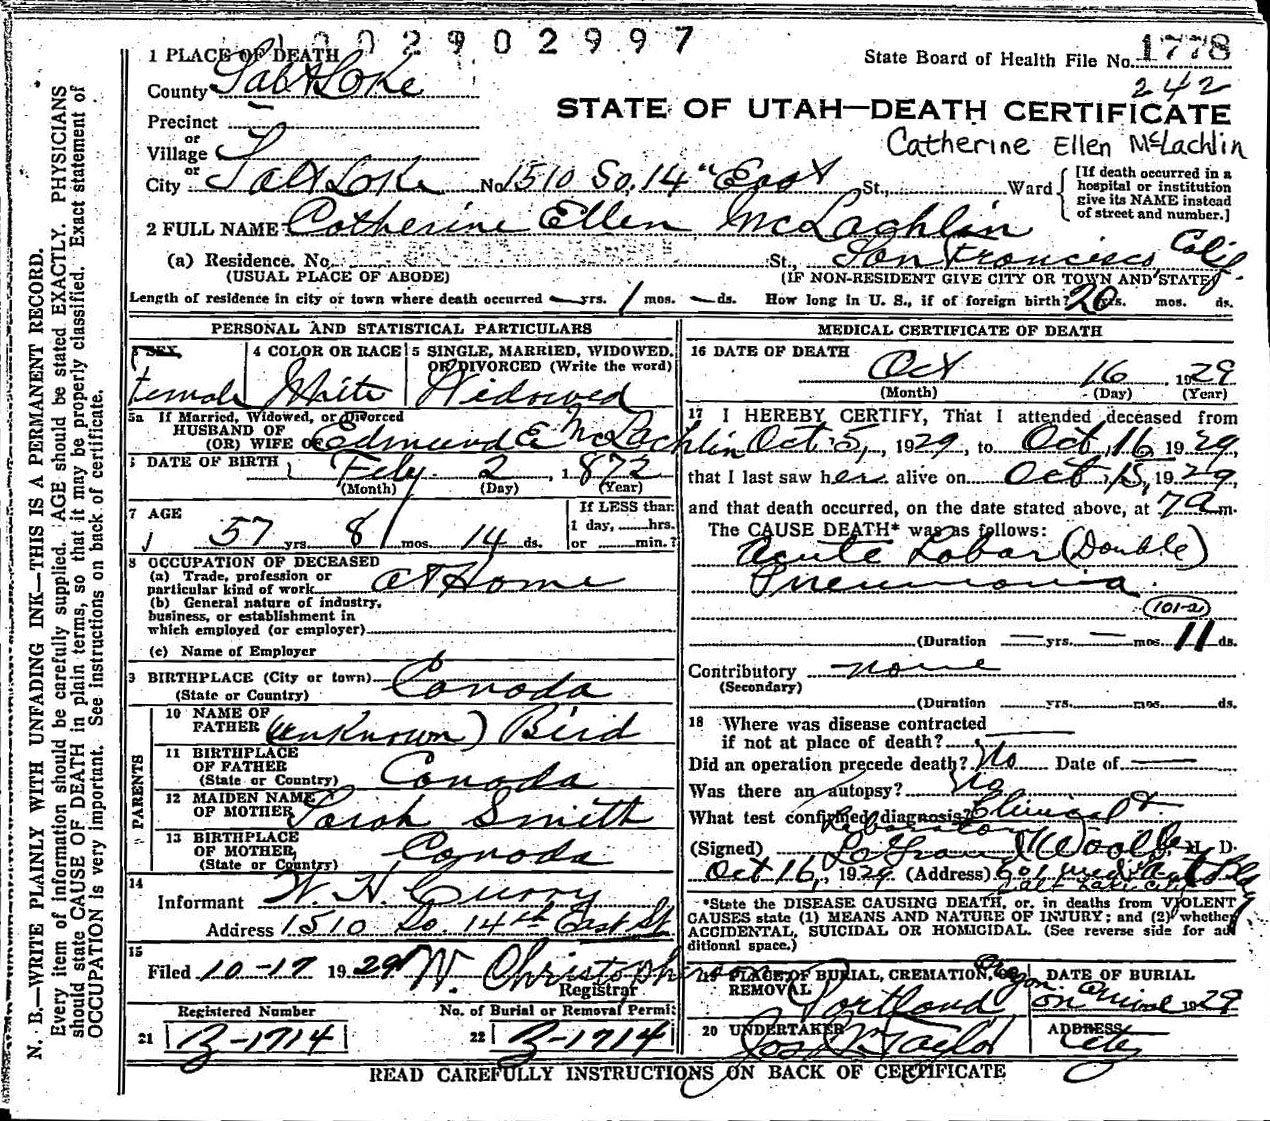 202902997
1 PLACE OF DEATH
State Board of Health File No. 1778
242
County Salt Lake
STATE OF UTAH—DEATH CERTIFICATE
Precinct
or
Village
Catherine Ellen McLachlin
or
City Salt Lake No. 1510 So. 14" East St., Ward
[If death occurred in a
hospital or institution
give its NAME instead
of street and number.]
2 FULL NAME Catherine Ellen McLachlin
(a) Residence. No. St., San Francisco Calif.
(USUAL PLACE OF ABODE) (IF NON-RESIDENT GIVE CITY OR TOWN AND STATE)
Length of residence in city or town where death occurred — yrs. 1 mos. — ds. How long in U. S., if of foreign birth? 20 yrs. mos. ds.
PERSONAL AND STATISTICAL PARTICULARS
3 SEX 4 COLOR OR RACE 5 SINGLE, MARRIED, WIDOWED,
OR DIVORCED (Write the word)
Female White Widowed
5a If Married, Widowed, or Divorced
HUSBAND OF
(OR) WIFE OF Edmund E McLachlin
DATE OF BIRTH Feby. 2, 1872
(Month) (Day) (Year)
7 AGE If LESS than
57 yrs. 8 mos. 14 ds. 1 day, hrs.
or min.?
8 OCCUPATION OF DECEASED
(a) Trade, profession or
particular kind of work At Home
(b) General nature of industry,
business, or establishment in
which employed (or employer)
(c) Name of Employer
9 BIRTHPLACE (City or town) Canada
(State or Country)
PARENTS
10 NAME OF
FATHER (unknown) Bird
11 BIRTHPLACE
OF FATHER
(State or Country) Canada
12 MAIDEN NAME
OF MOTHER Sarah Smith
13 BIRTHPLACE
OF MOTHER
(State or Country) Canada
14
Informant W. H. Curry
Address 1510 So. 14th East St
15
Filed 10-17 1929 W. Christopherson
Registrar
Registered Number No. of Burial or Removal Permit
21 B-1714 22 B-1714
MEDICAL CERTIFICATE OF DEATH
16 DATE OF DEATH
Oct 16, 1929
(Month) (Day) (Year)
17 I HEREBY CERTIFY, That I attended deceased from
Oct 5, 1929, to Oct 16 1929,
that I last saw her alive on Oct 15, 1929,
and that death occurred, on the date stated above, at 7a m.
The CAUSE DEATH* was as follows:
Acute Lobar (Double)
Pneumonia
(101-a)
(Duration — yrs. — mos. 11 ds.
Contributory none
(Secondary)
(Duration yrs. mos. ds.
18 Where was disease contracted
if not at place of death?
Did an operation precede death? No Date of —
Was there an autopsy? No
What test confirmed diagnosis? Clinical +
Laboratory
(Signed) M. D.
Oct 16, 1929 (Address)
Salt Lake City
*State the DISEASE CAUSING DEATH, or, in deaths from VIOLENT
CAUSES state (1) MEANS AND NATURE OF INJURY; and (2) whether
ACCIDENTAL, SUICIDAL OR HOMICIDAL. (See reverse side for ad
ditional space.)
19 PLACE OF BURIAL, CREMATION, OR
REMOVAL
Portland Oregon
DATE OF BURIAL
on arrival 1929
20 UNDERTAKER Jos. Wm Taylor
ADDRESS
City
READ CAREFULLY INSTRUCTIONS ON BACK OF CERTIFICATE
N. B.—WRITE PLAINLY WITH UNFADING INK—THIS IS A PERMANENT RECORD.
Every item of information should be carefully supplied. AGE should be stated EXACTLY. PHYSICIANS
should state CAUSE OF DEATH in plain terms, so that it may be properly classified. Exact statement of
OCCUPATION is very important. See instructions on back of certificate.